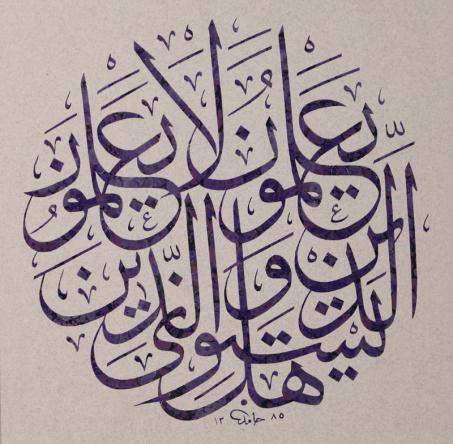 هل يستوى الذين يعلمون والذين لا يعلمون
١٣ حامد ٨٥